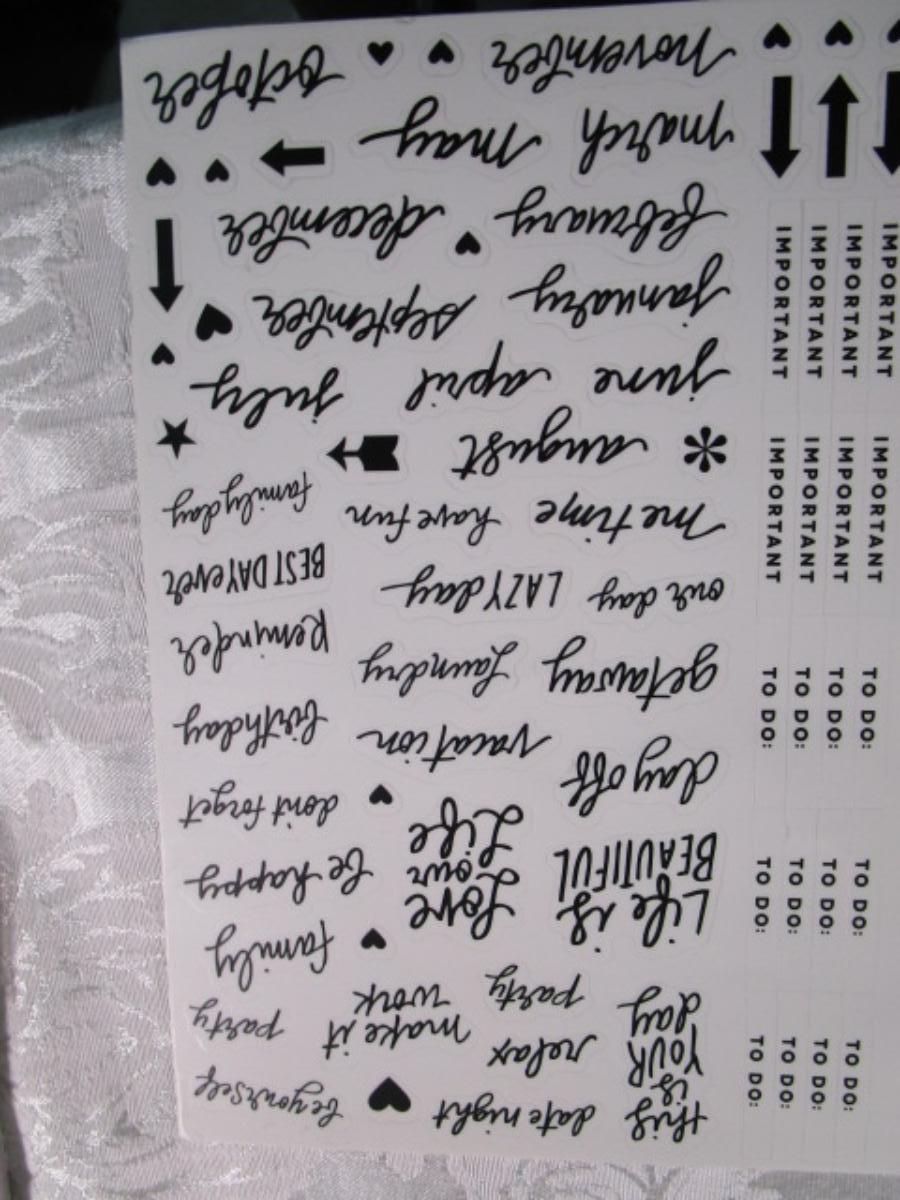 this is YOUR day
date night
be yourself
relax
make it work
party
party
Life is BEAUTIFUL
Love our Life
family
be happy
don't forget
day off
vacation
birthday
getaway
Laundry
Reminder
our day
LAZY day
BEST DAY ever
me time
have fun
family day
august
june
april
july
january
september
february
december
march
may
november
october
TO DO:
TO DO:
TO DO:
TO DO:
TO DO:
TO DO:
TO DO:
TO DO:
TO DO:
TO DO:
TO DO:
TO DO:
IMPORTANT
IMPORTANT
IMPORTANT
IMPORTANT
IMPORTANT
IMPORTANT
IMPORTANT
IMPORTANT